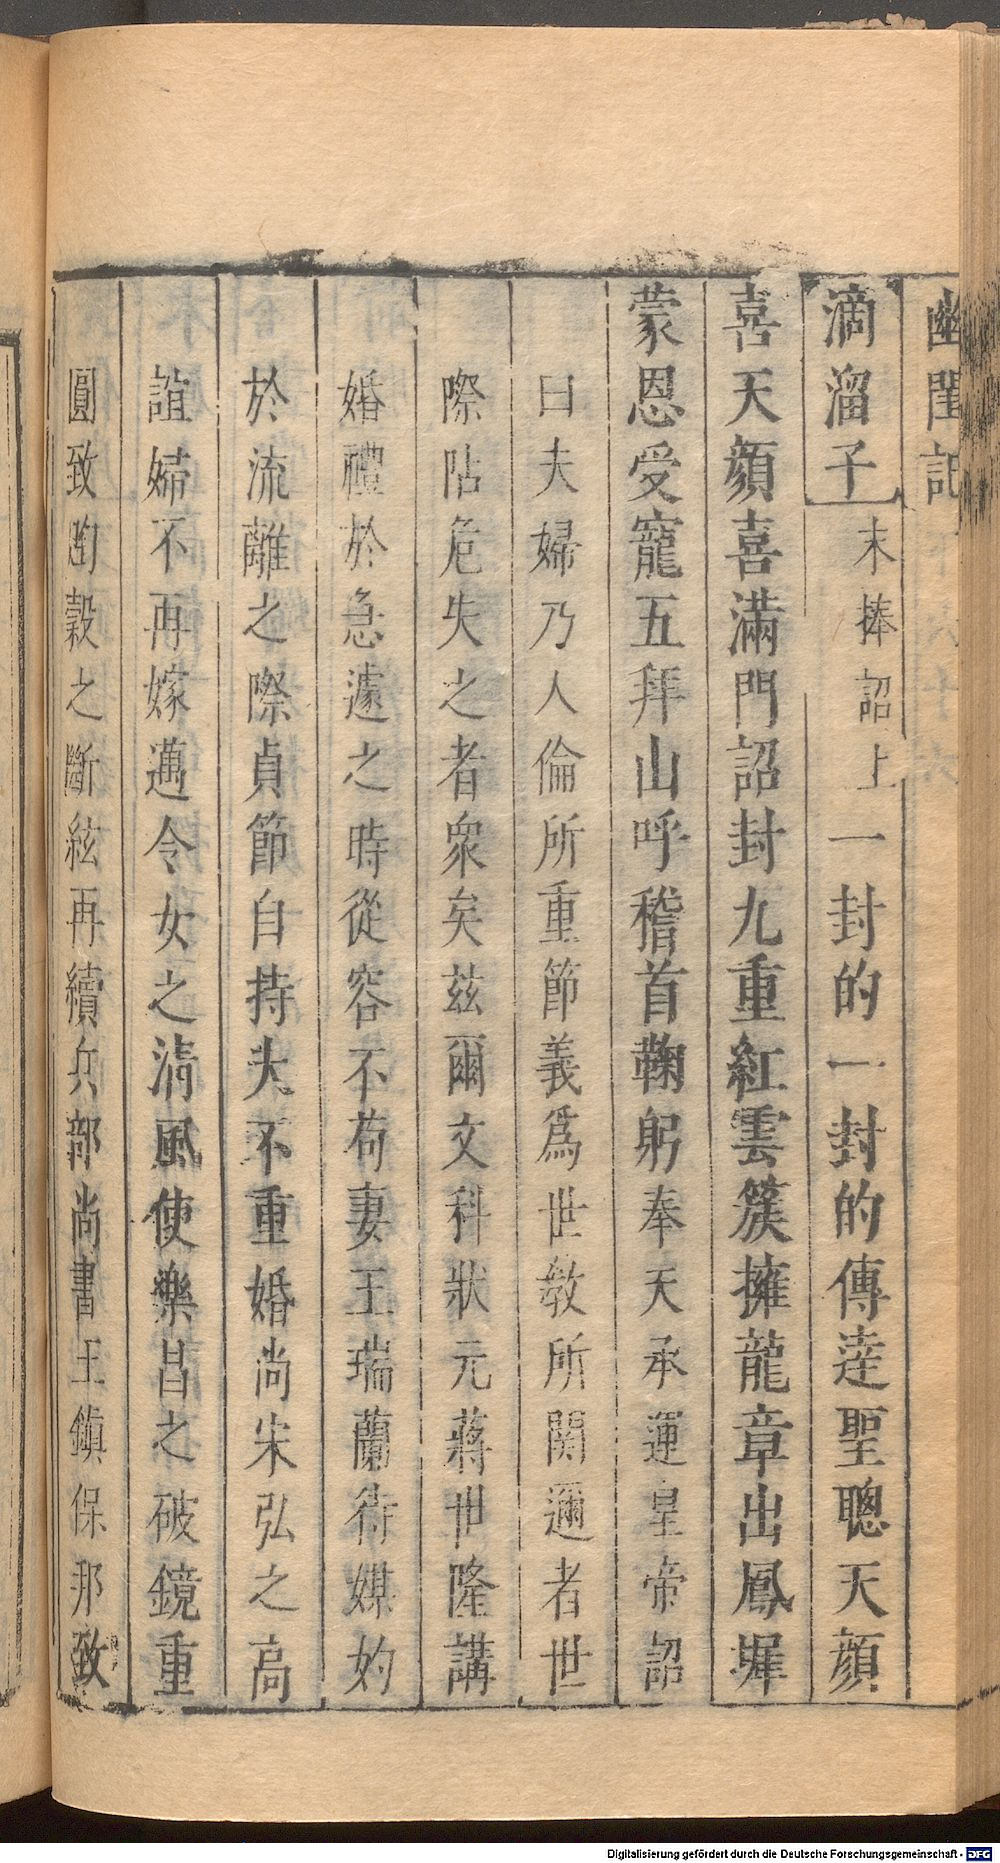 幽閨記
滴溜子 末捧詔上一封的一封的傳達聖聰天顔
喜天顔喜滿門詔封九重紅雲簇擁龍章出鳳墀
蒙恩受寵五拜山呼稽首鞠躬奉天承運皇帝詔
曰夫婦乃人倫所重節義爲世教所関邇者世
際阽危失之者衆矣兹爾文科狀元蔣世隆講
婚禮於急遽之時從容不苟妻王瑞蘭待媒妁
於流離之際貞節自持夫不重婚尚宋弘之高
誼婦不再嫁邁令女之清風使樂昌之破鏡重
圓致陶穀之斷絃再續兵部尚書王鎮保那致
Digitalisierung gefördert durch die Deutsche Forschungsgemeinschaft - DFG